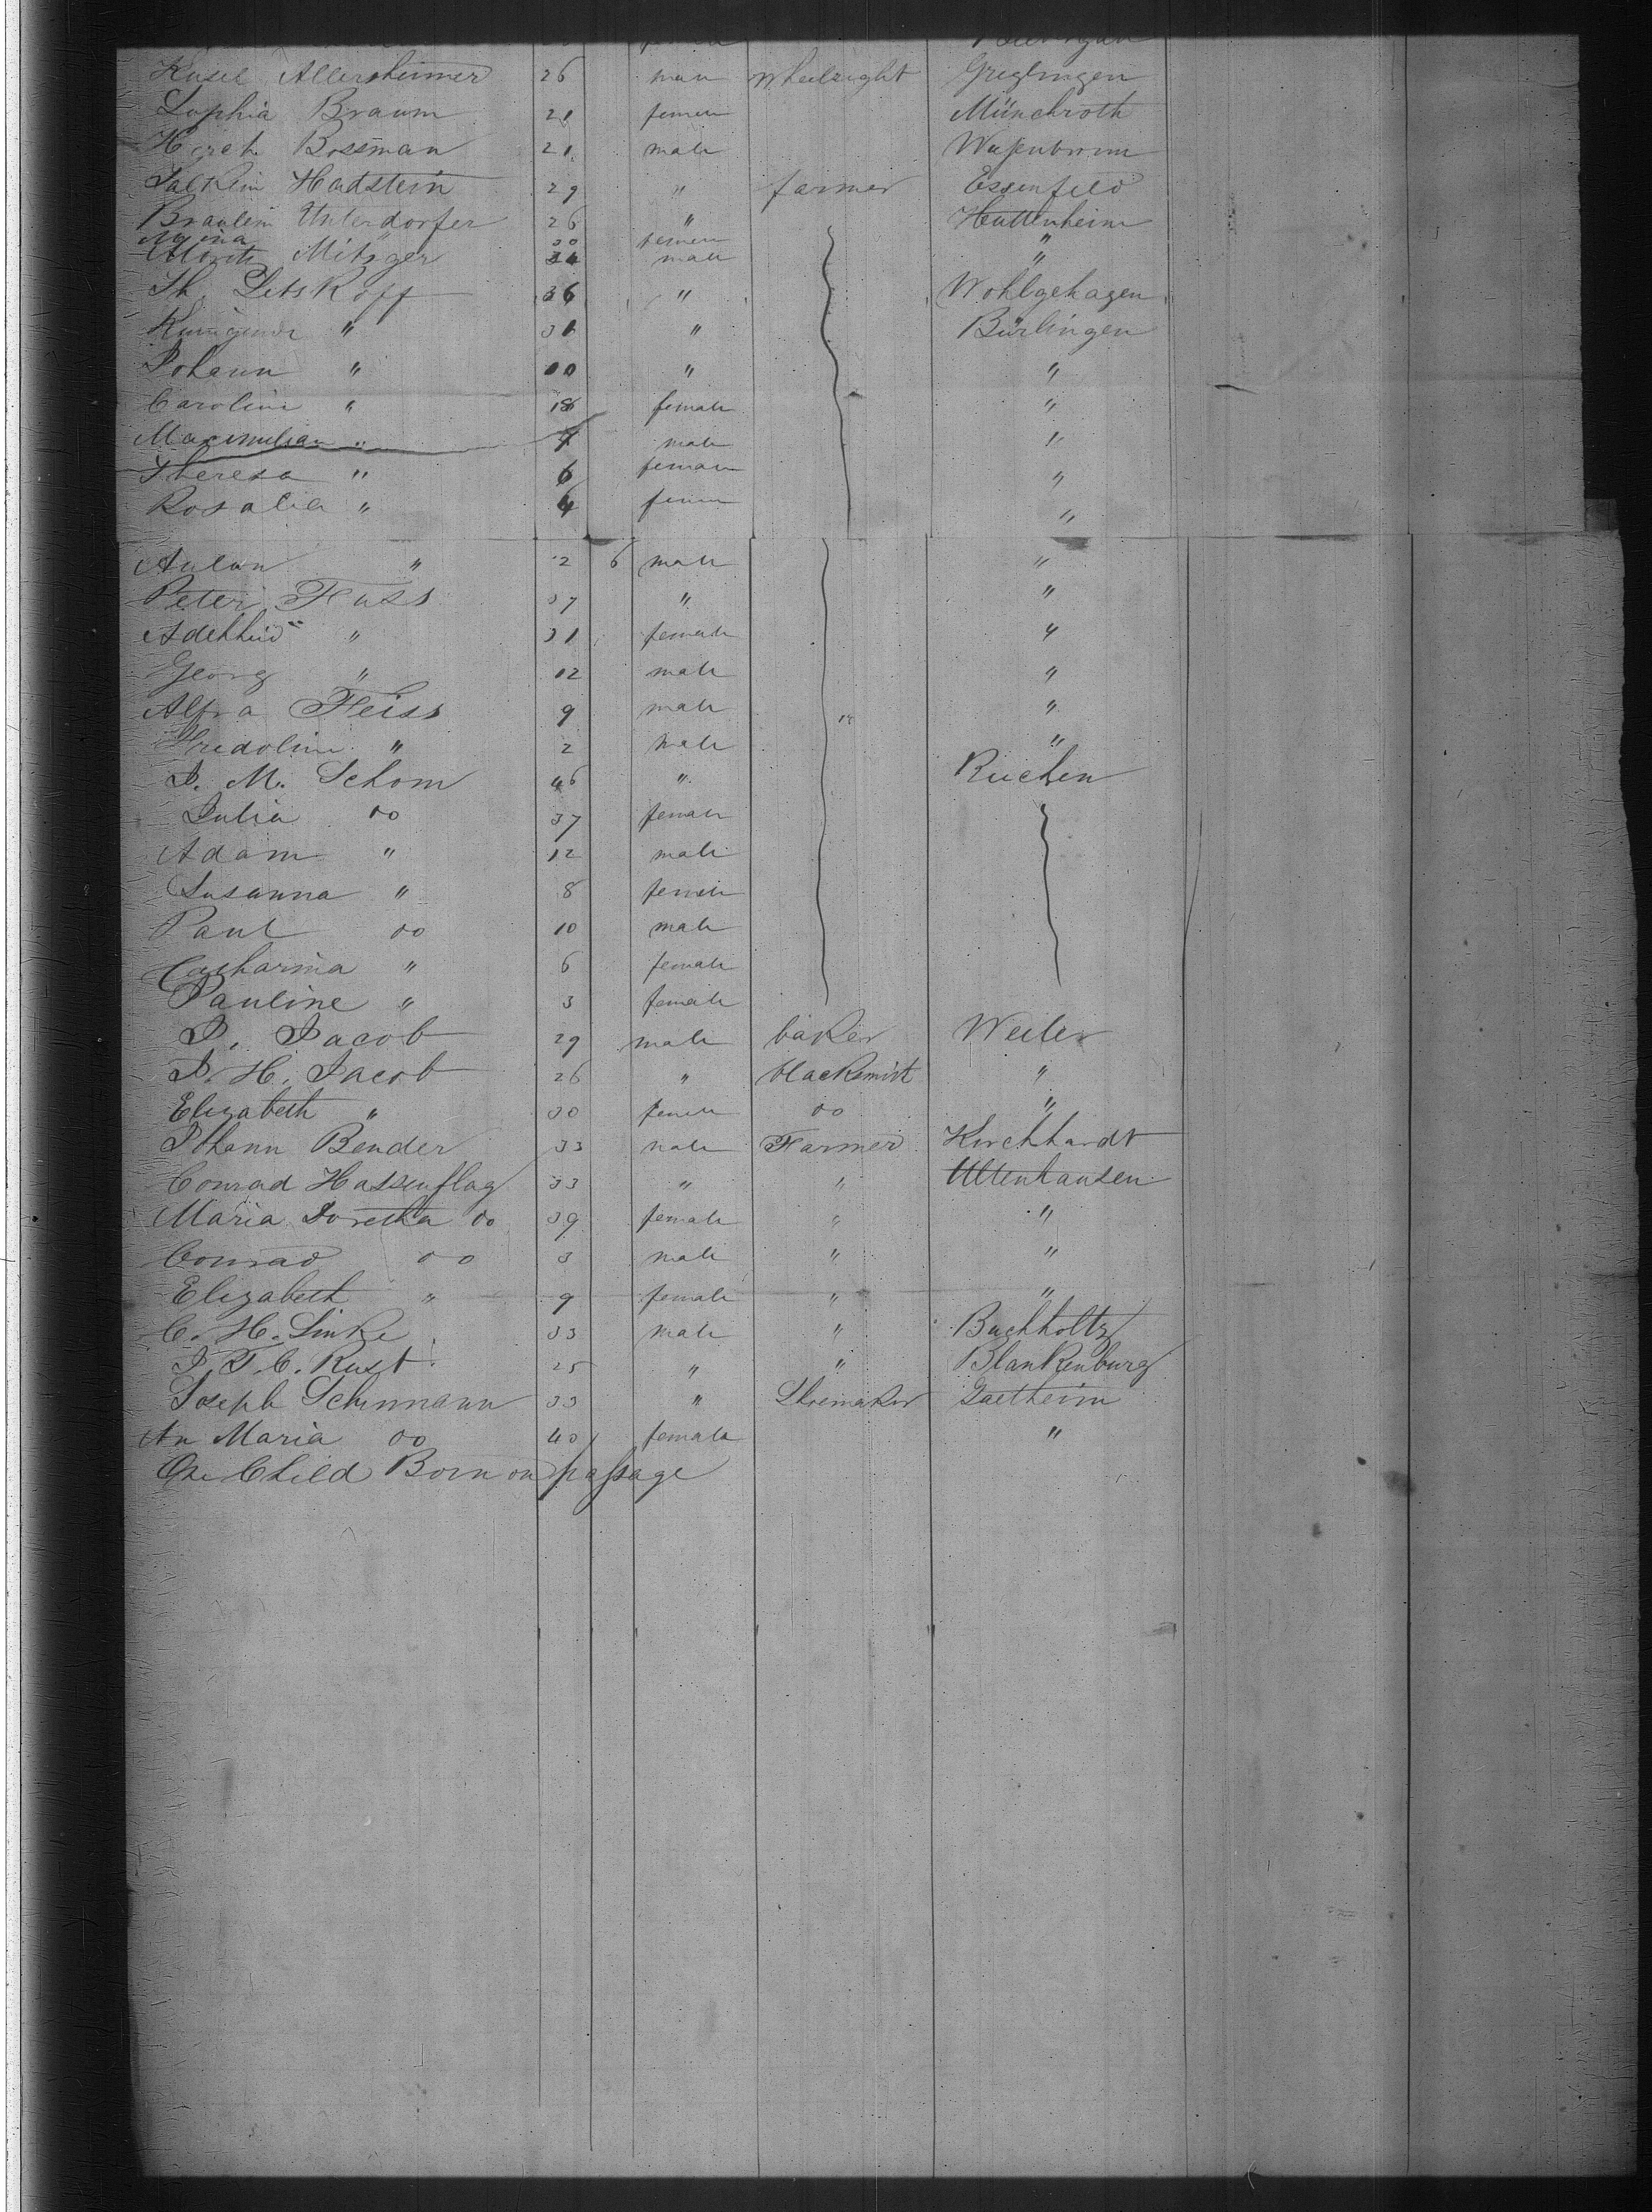 Allersheimer 26 wheelright Greglingen
Sophia Braum 21 Münchroth
Bossman 21 male
Hadstein 29 " farmer Essenfeld
Unterdorfer 26 " Huttenheim
30 "
Moritz Mitzger 34 male "
Th. 36 " Wohlgehagen
" 31 " Bürlingen
Johann " 10 " "
Caroline " 18 female "
Maximilian " male "
Theresa " 6 "
Rosalia " 4 "
" 2 6 male "
Peter Fuss 37 " "
Adelheid " 31 female "
Georg " 12 male "
Feiss 9 male "
Fridolin " 2 male "
J. M. Schom 46 " Ruchen
Julia do 37 female
Adam " 12 male
Susanna " 8 female
Paul do 10 male
Catharina " 6 female
Pauline " 3 female
J. Jacob 29 male baker Weiler
J. H. Jacob 26 " blacksmit "
Elizabeth " 30 do "
Johann Bender 33 male Farmer Kirchhardt
Conrad Hassenflag 33 " " Altenhausen
Maria Doretha do 39 female " "
Conrad do 3 male " "
Elizabeth " 9 female " "
C. H. Linke 33 male " Buchholtz
J. F. C. Rust 25 " " Blankenburg
Joseph Schumann 33 " Shoemaker
An Maria do 40 female "
One Child Born on passage